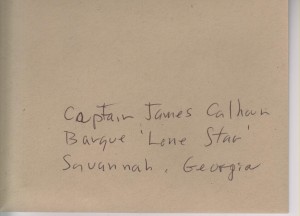 Captain James Calhoun
Barque 'Lone Star'
Savannah, Georgia